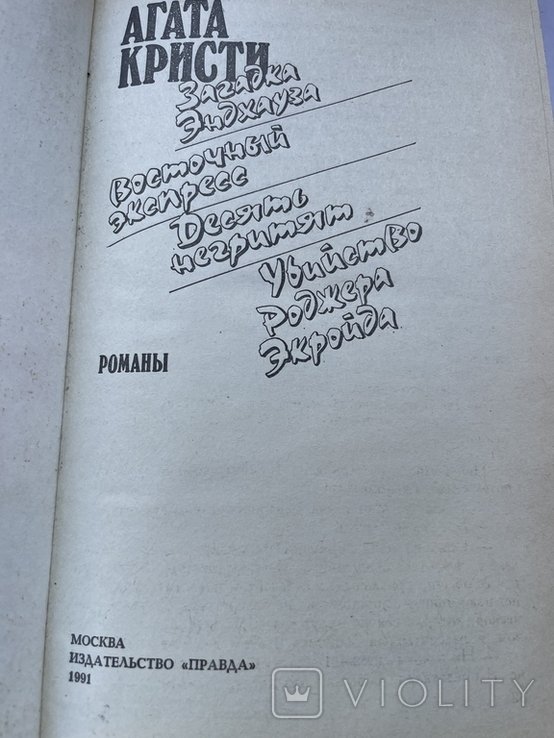 АГАТА
КРИСТИ
Загадка
Эндхауза
Восточный
экспресс
Десять
негритят
Убийство
Роджера
Экройда
РОМАНЫ
МОСКВА
ИЗДАТЕЛЬСТВО «ПРАВДА»
1991
VIOLITY